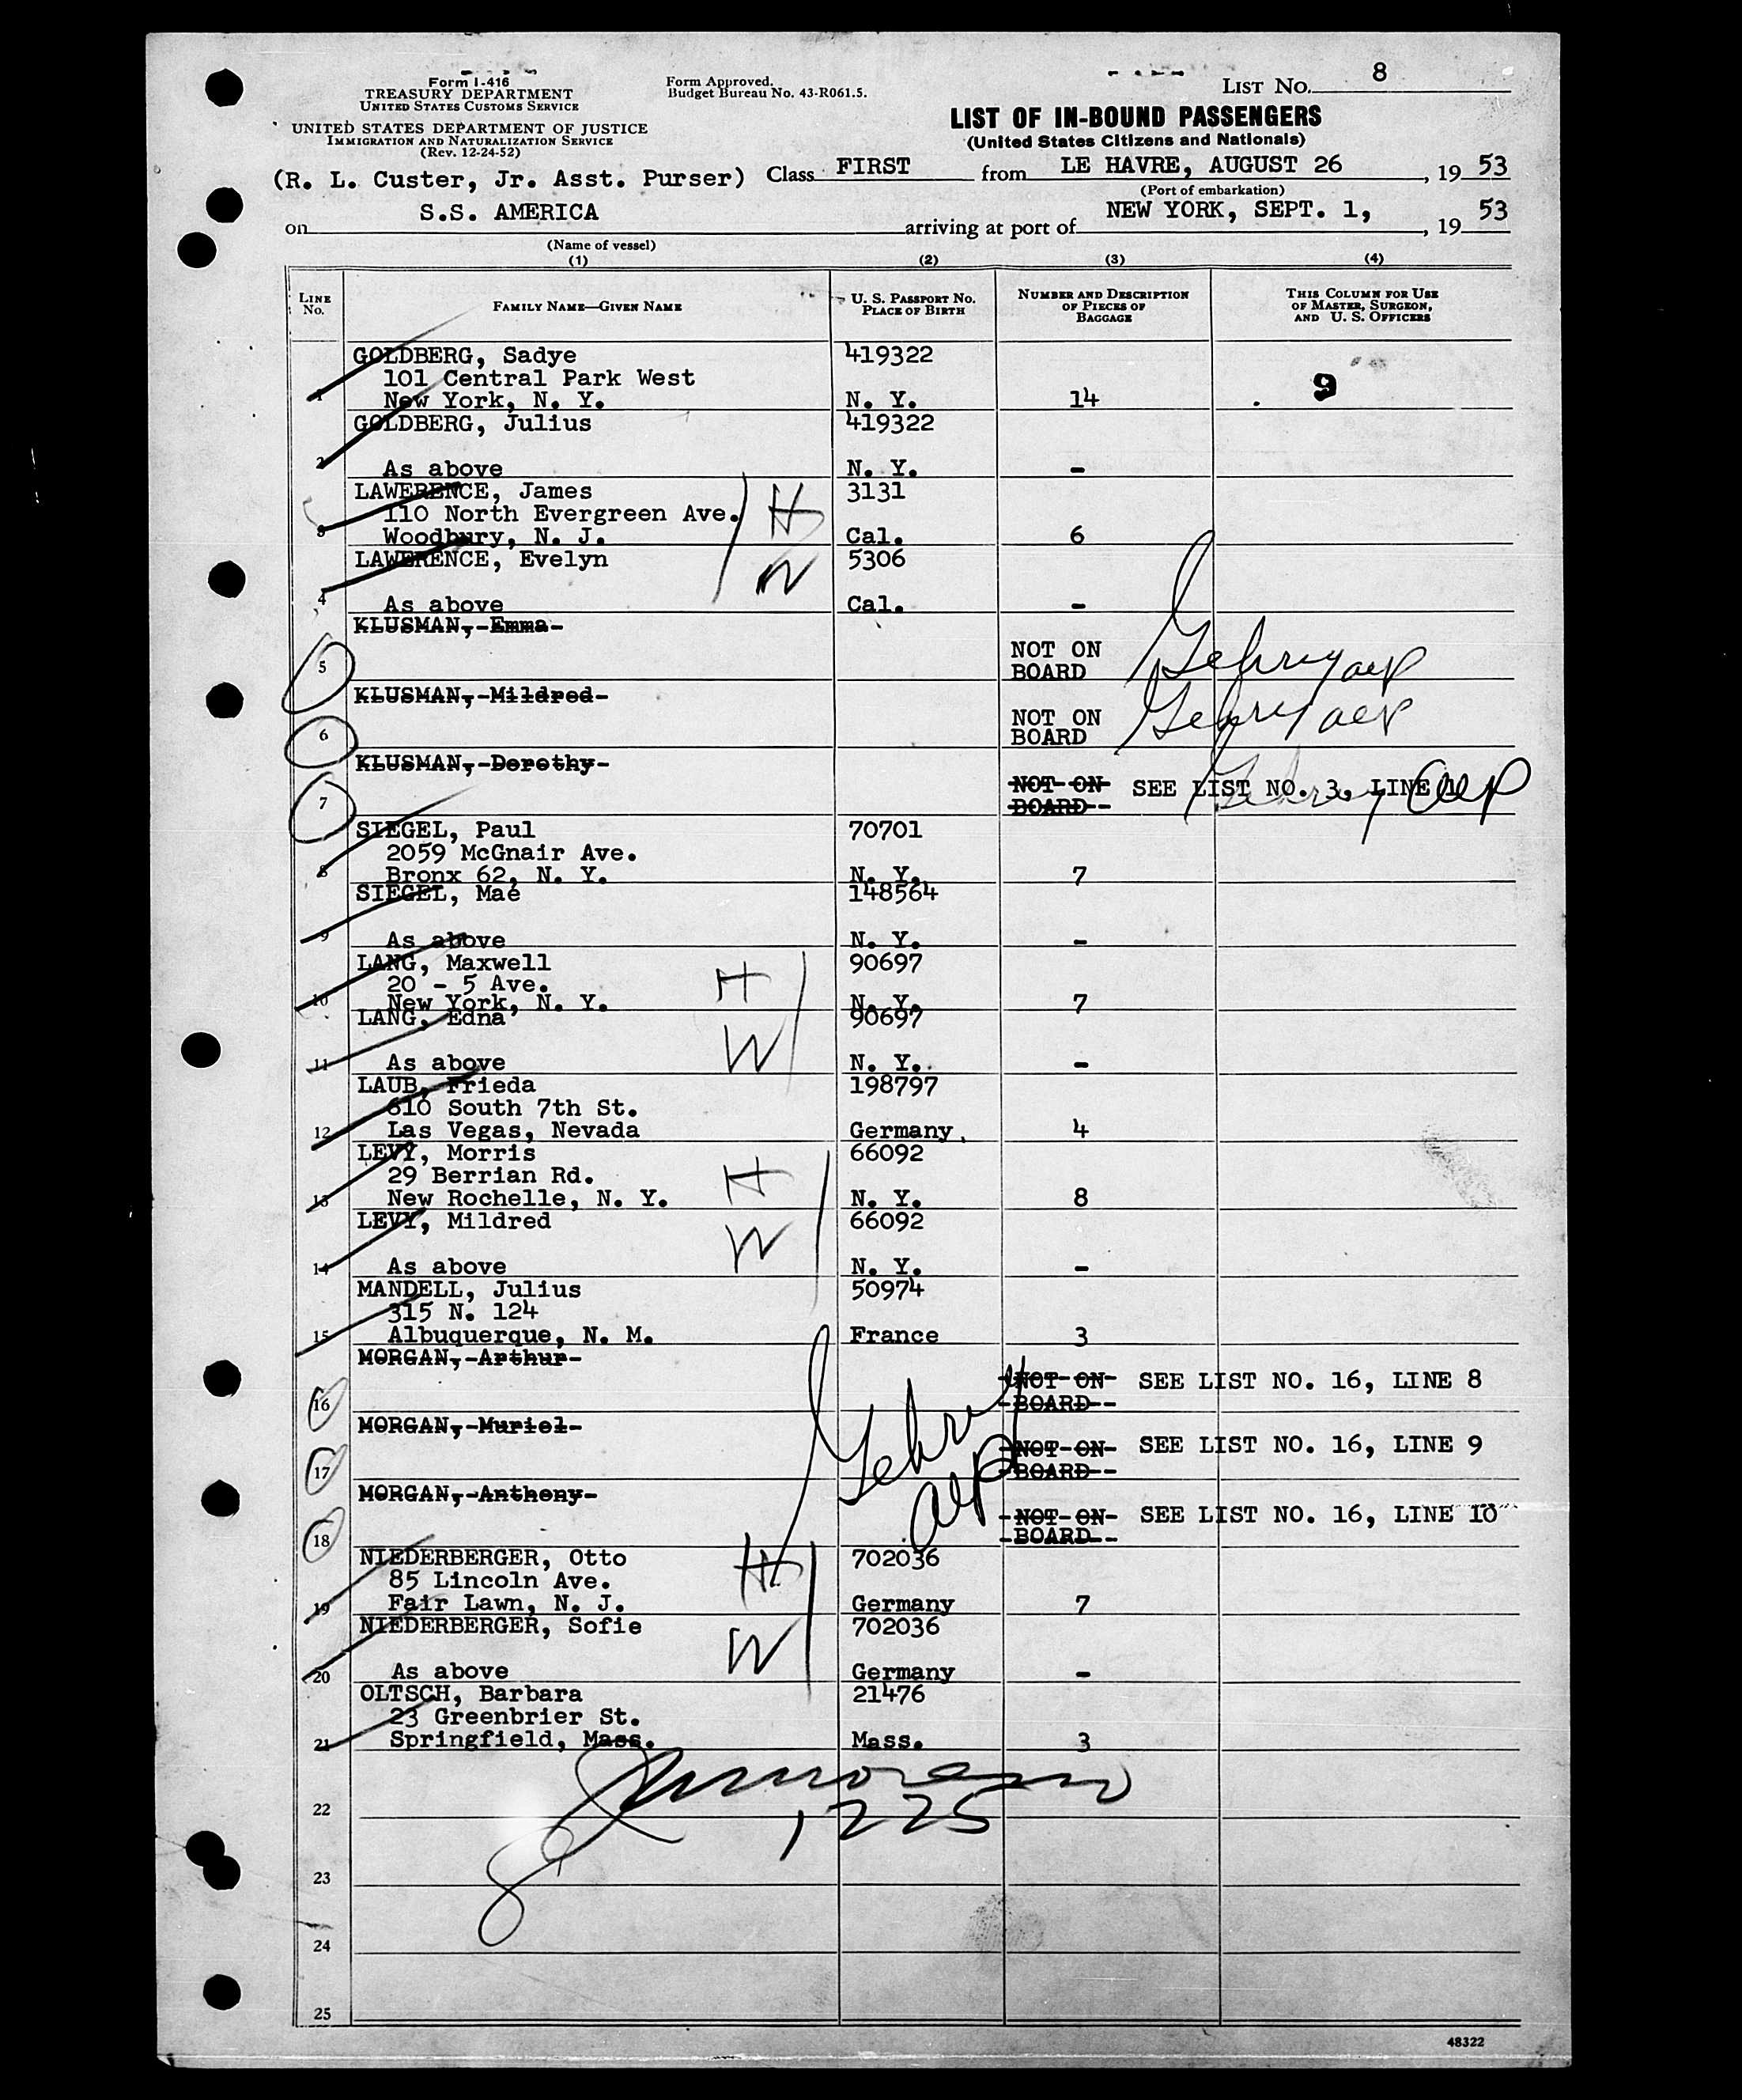 Form I-416
TREASURY DEPARTMENT
UNITED STATES CUSTOMS SERVICE
UNITED STATES DEPARTMENT OF JUSTICE
IMMIGRATION AND NATURALIZATION SERVICE
(Rev. 12-24-52)
Form Approved.
Budget Bureau No. 43-R061.5.
LIST No. 8
LIST OF IN-BOUND PASSENGERS
(United States Citizens and Nationals)
(R. L. Custer, Jr. Asst. Purser) Class FIRST from LE HAVRE, AUGUST 26, 19 53
(Port of embarkation)
on S.S. AMERICA arriving at port of NEW YORK, SEPT. 1, , 19 53
(Name of vessel)
(1) (2) (3) (4)
LINE No. FAMILY NAME—GIVEN NAME U. S. PASSPORT No. PLACE OF BIRTH NUMBER AND DESCRIPTION OF PIECES OF BAGGAGE THIS COLUMN FOR USE OF MASTER, SURGEON, AND U. S. OFFICERS
GOLDBERG, Sadye 419322
101 Central Park West 9
1 New York, N. Y. N. Y. 14
GOLDBERG, Julius 419322
2 As above N. Y. -
LAWERENCE, James 3131
110 North Evergreen Ave. H
3 Woodbury, N. J. Cal. 6
LAWERENCE, Evelyn W 5306
4 As above Cal. -
KLUSMAN, Emma
5 NOT ON BOARD
KLUSMAN, Mildred
6 NOT ON BOARD
KLUSMAN, Dorothy
7 NOT ON BOARD SEE LIST NO. 3, LINE 1
SIEGEL, Paul 70701
2059 McGnair Ave.
8 Bronx 62, N. Y. N. Y. 7
SIEGEL, Mae 148564
9 As above N. Y. -
LANG, Maxwell 90697
20 - 5 Ave. H
10 New York, N. Y. N. Y. 7
LANG, Edna 90697
W
11 As above N. Y. -
LAUB, Frieda 198797
610 South 7th St.
12 Las Vegas, Nevada Germany 4
LEVY, Morris 66092
29 Berrian Rd. H
13 New Rochelle, N. Y. N. Y. 8
LEVY, Mildred 66092
W
14 As above N. Y. -
MANDELL, Julius 50974
315 N. 124
15 Albuquerque, N. M. France 3
MORGAN, Arthur
16 NOT ON BOARD SEE LIST NO. 16, LINE 8
MORGAN, Muriel
17 NOT ON BOARD SEE LIST NO. 16, LINE 9
MORGAN, Anthony
18 NOT ON BOARD SEE LIST NO. 16, LINE 10
NIEDERBERGER, Otto H 702036
85 Lincoln Ave.
19 Fair Lawn, N. J. Germany 7
NIEDERBERGER, Sofie W 702036
20 As above Germany -
OLTSCH, Barbara 21476
23 Greenbrier St.
21 Springfield, Mass. Mass. 3
22 1225
23
24
25
48322